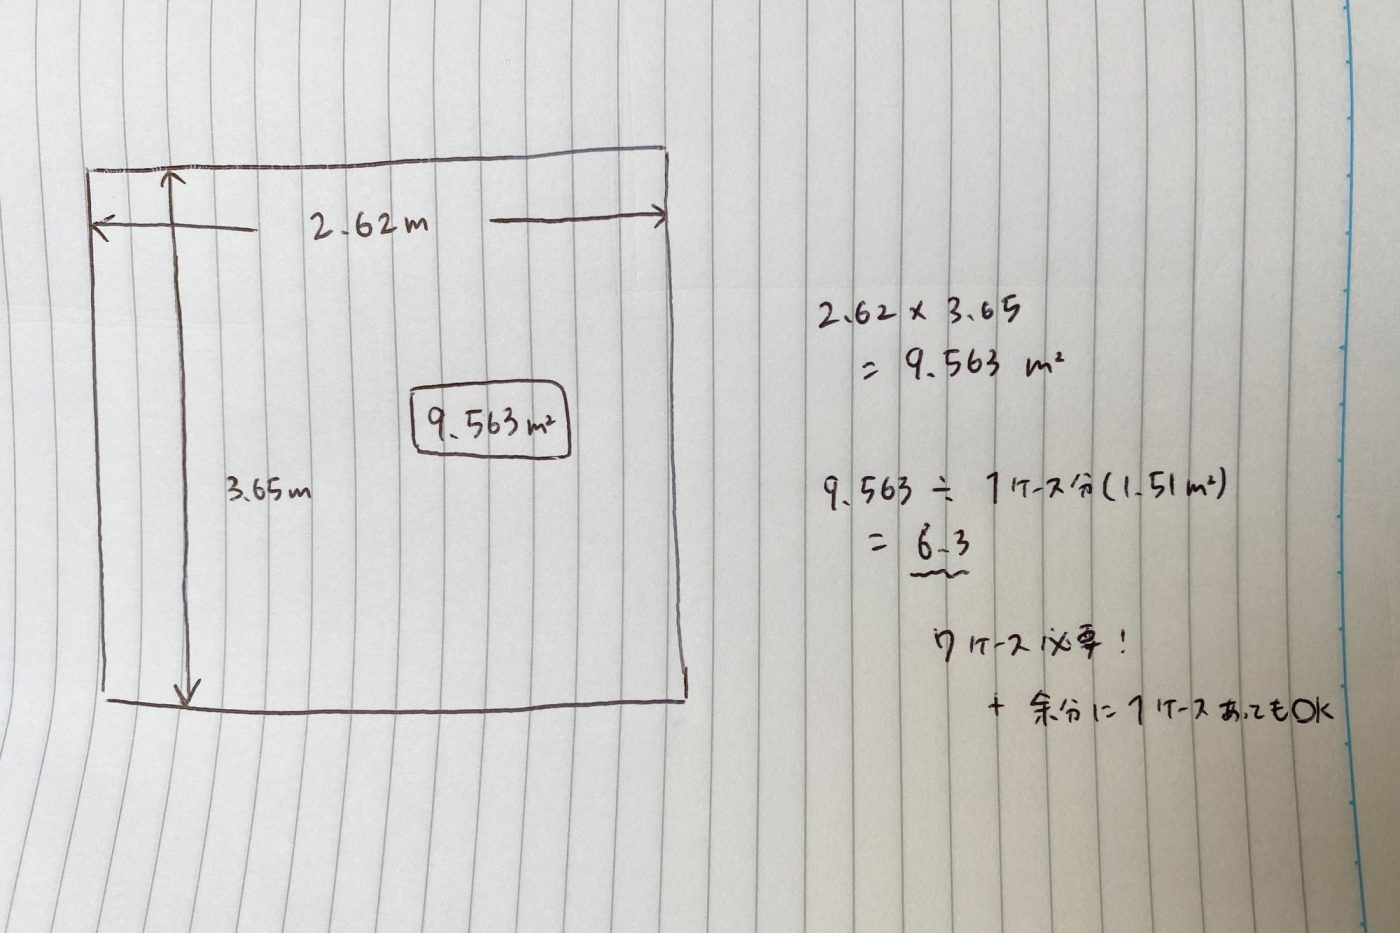 2.62m
3.65m
9.563m²
2.62 × 3.65
= 9.563 m²
9.563 ÷ 1ケース分(1.51m²)
= 6.3
7ケース必要!
+ 余分に1ケースあってもOK